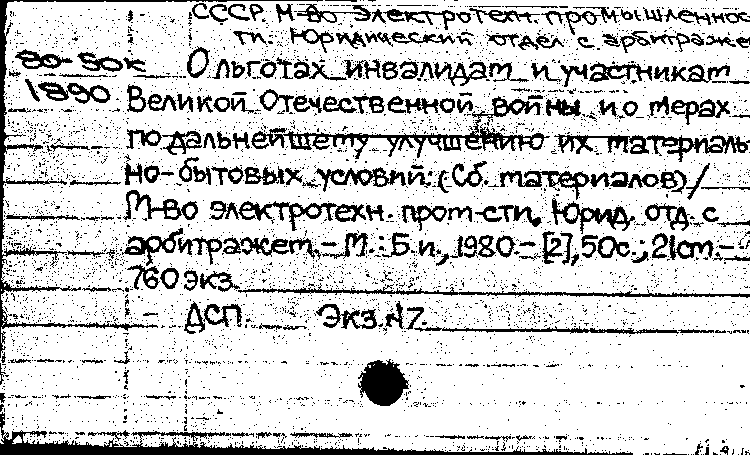 СССР. М-во электротехн. промышленнос
ти. Юридический отдел с арбитраже
80-50к О льготах инвалидам и участникам
1890 Великой Отечественной войны и о мерах
по дальнейшему улучшению их материаль
но-бытовых условий: (Сб. материалов)/
М-во электротехн. пром-сти, Юрид. отд. с
арбитражем.- М.: Б.и., 1980.- [2], 50с.; 21см.-
760 экз.
- ДСП. Экз. №7.